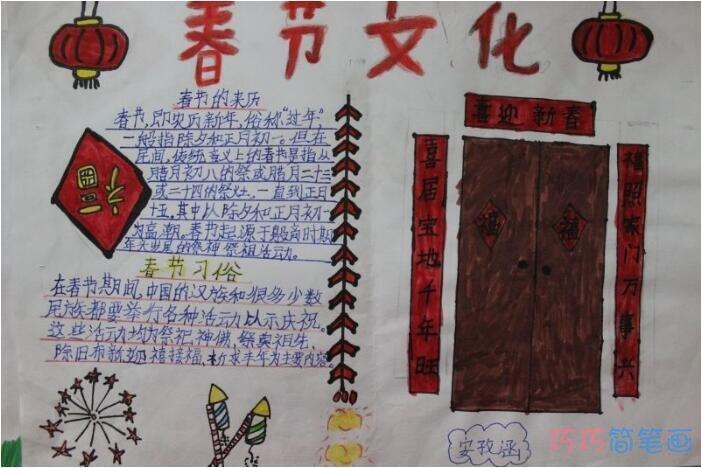 春节文化
春节的来历
春节,即农历新年,俗称"过年",
一般指除夕和正月初一。但在
民间,传统意义上的春节是指从
腊月初八的祭或腊月二十三
或二十四的祭灶,一直到正月
十五,其中以除夕和正月初一
为高潮。春节起源于殷商时期
年头岁尾的祭神祭祖活动。
春节习俗
在春节期间,中国的汉族和很多少数
民族都要举行各种活动以示庆祝。
这些活动均为祭祀神佛、祭奠祖先、
除旧布新迎禧接福、祈求丰年为主要内容。
福
喜迎新春
喜居宝地千年旺
福照家门万事兴
福
福
安孜涵
巧巧简笔画